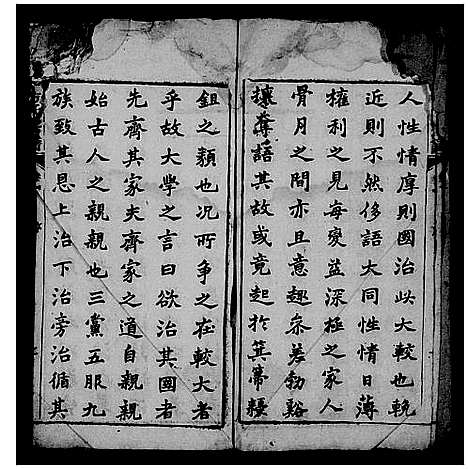 人性情厚則國治此大較也輓
近則不然侈語大同性情日薄
權利之見每變益深極之家人
骨月之間亦且意趣參差勃谿
攘奪語其故或竟起於箕箒耰
鉏之類也况所爭之在較大者
乎故大學之言曰欲治其國者
先齊其家夫齊家之道自親親
始古人之親親也三黨五服九
族致其恩上治下治旁治循其